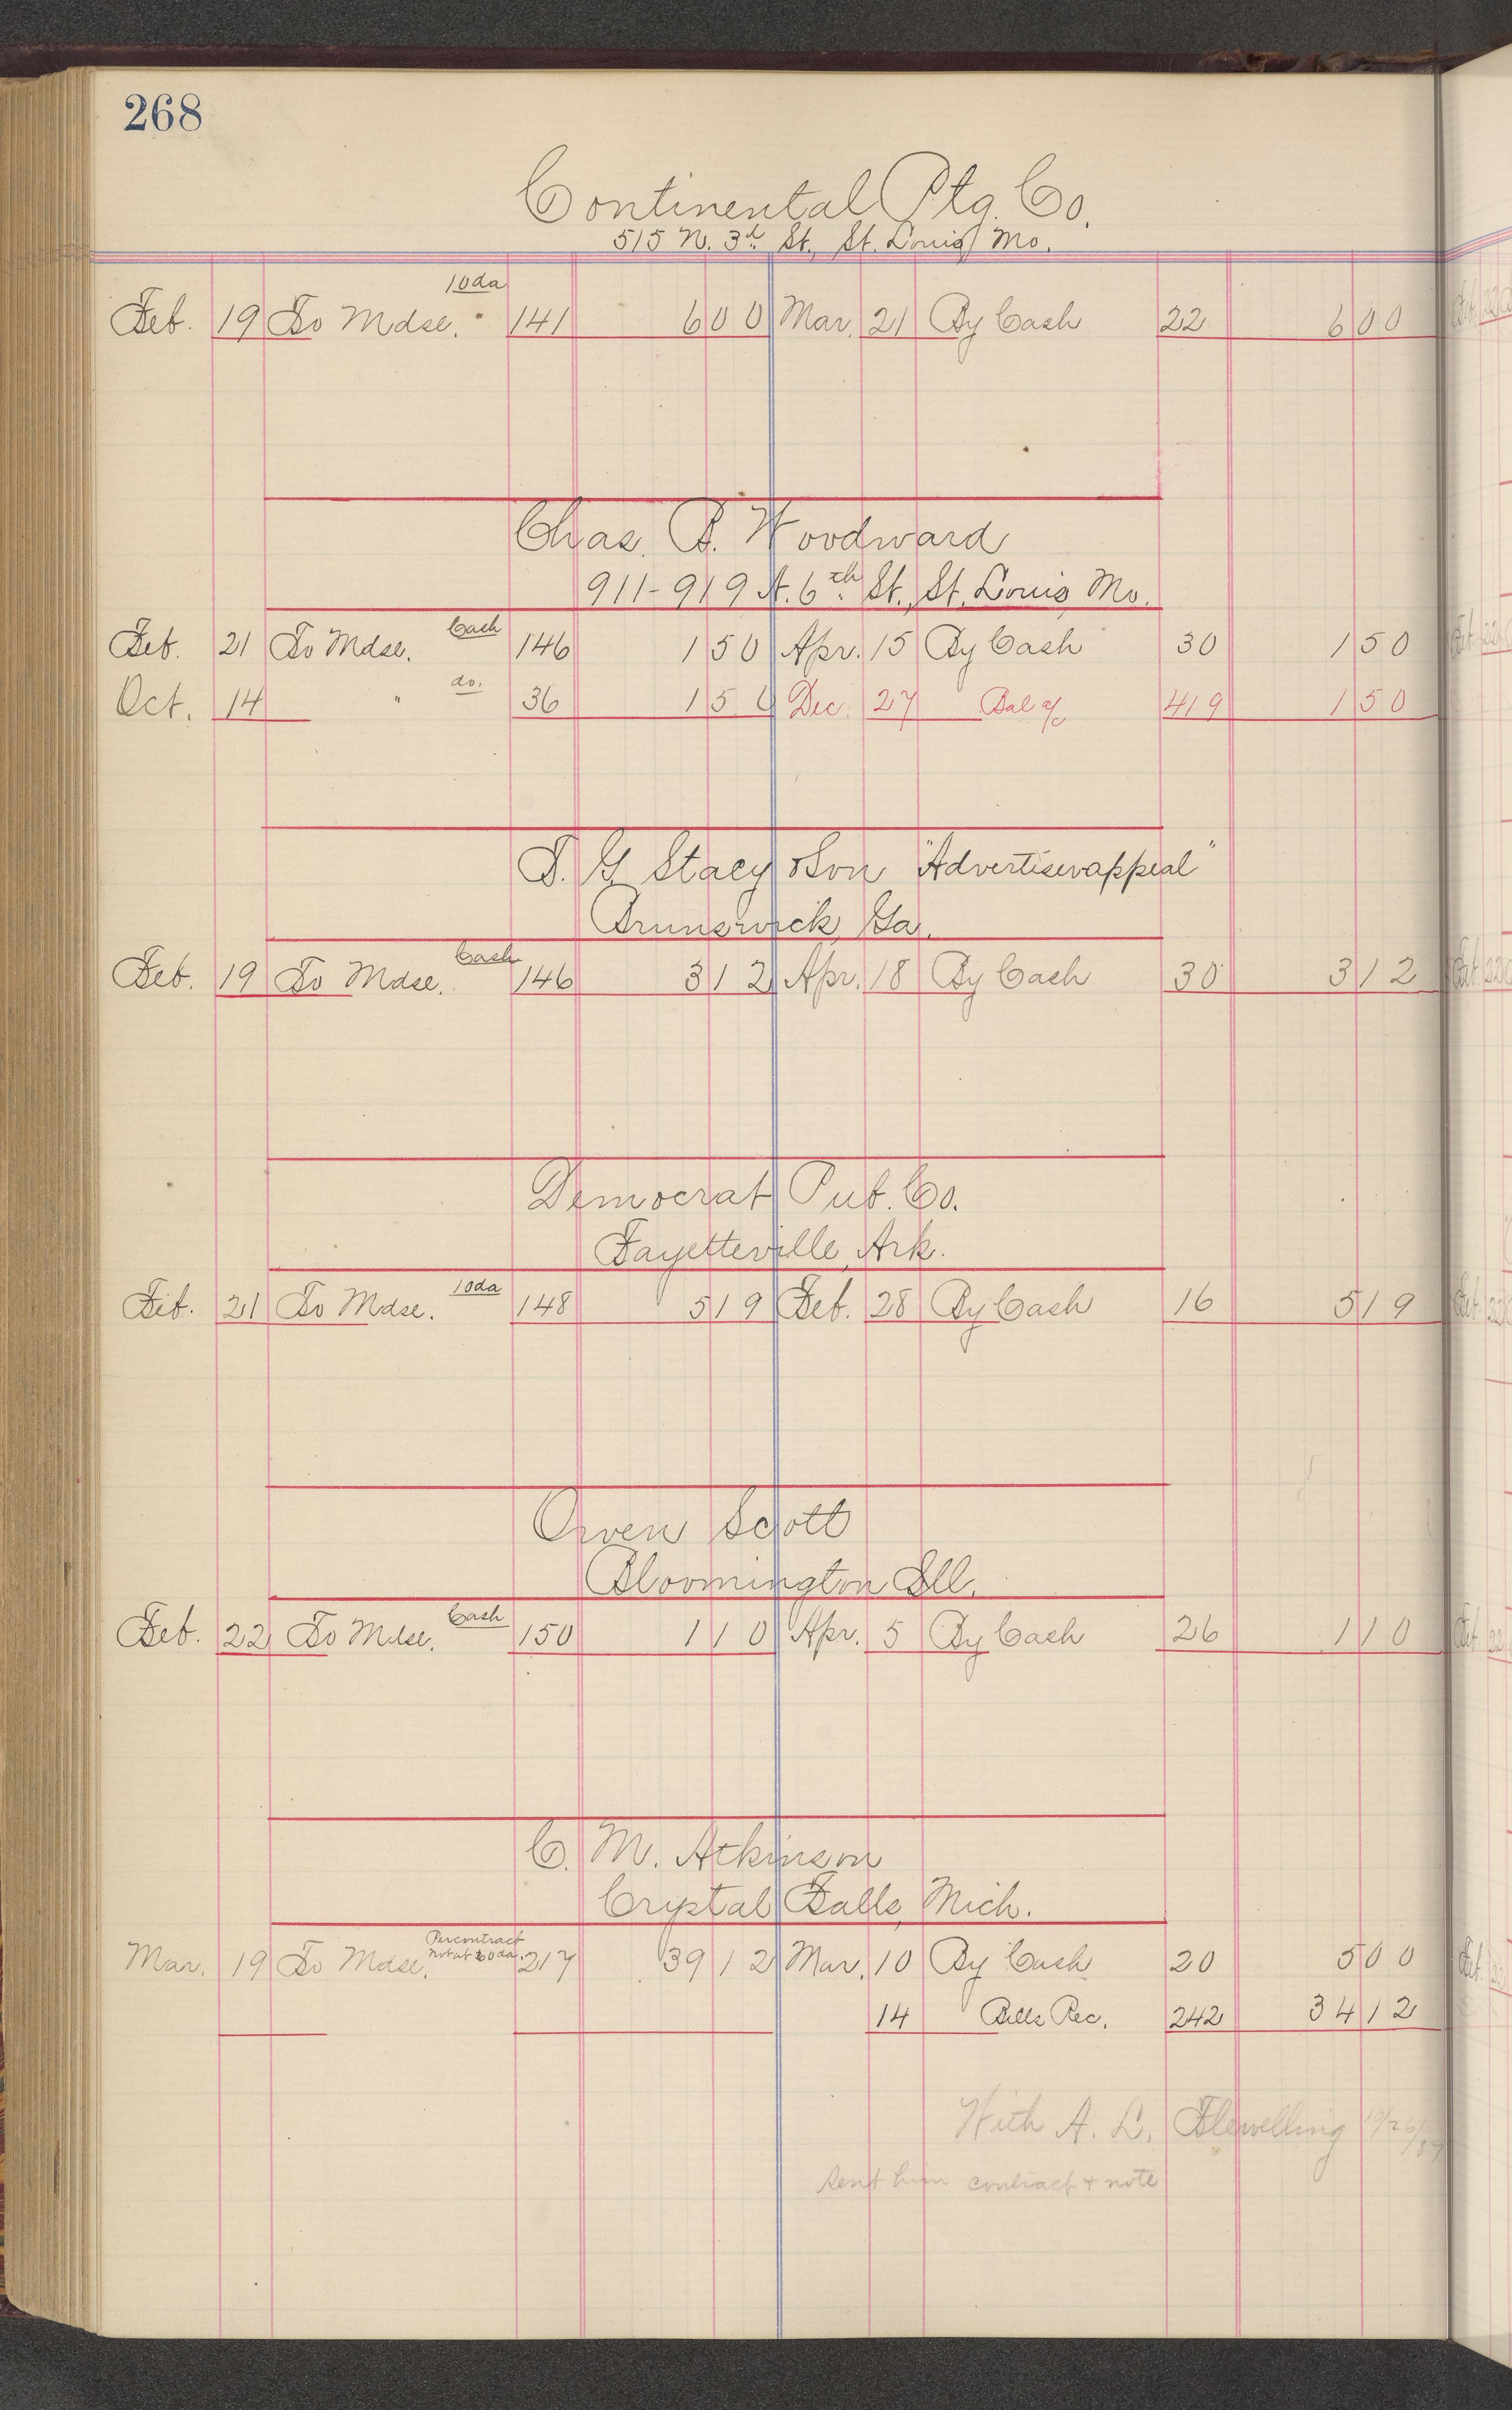 268
Continental Ptg. Co.
515 N. 3d St., St. Louis, Mo.
10da
Feb. 19 To Mdse. 141 6 00 Mar. 21 By Cash 22 6 00
Chas. B. Woodward
911-919 N. 6th St., St. Louis, Mo.
Cash
Feb. 21 To Mdse. 146 1 50 Apr. 15 By Cash 30 1 50
do.
Oct. 14 " 36 1 50 Dec. 27 Bal a/c 419 1 50
T. G. Stacy & Son "Advertiser appeal"
Brunswick, Ga.
Cash
Feb. 19 To Mdse. 146 3 12 Apr. 18 By Cash 30 3 12
Democrat Pub. Co.
Fayetteville, Ark.
10da
Feb. 21 To Mdse. 148 5 19 Feb. 28 By Cash 16 5 19
Owen Scott
Bloomington Ill.
Cash
Feb. 22 To Mdse. 150 1 10 Apr. 5 By Cash 26 1 10
C. M. Atkinson
Crystal Falls, Mich.
Per contract
not at 60 da.
Mar. 19 To Mdse. 217 39 12 Mar. 10 By Cash 20 5 00
14 Bills Rec. 242 34 12
With A. L. Flewelling
Sent him contract & note